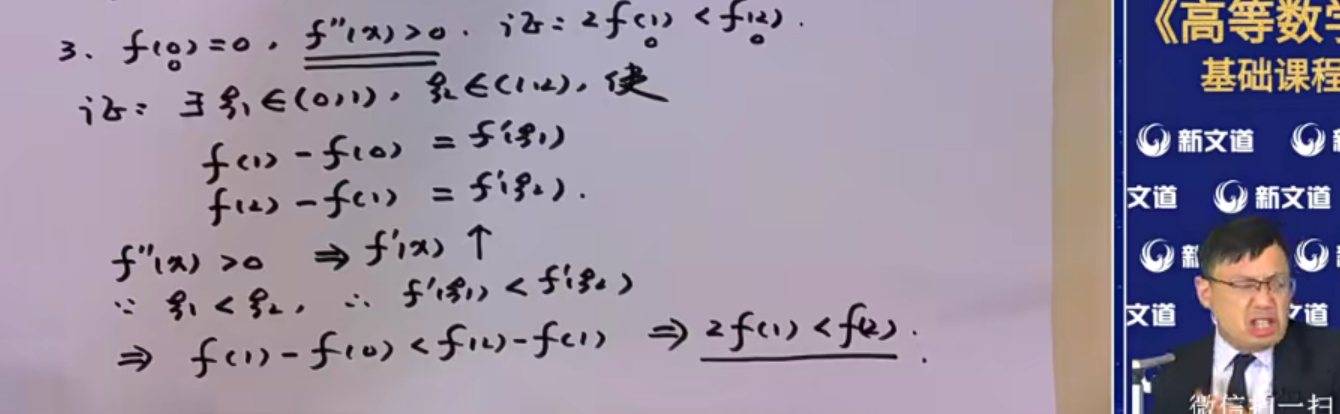 3、f(0)=0，f''(x)>0．证：2f(1)<f(2)．
证：∃ξ₁∈(0,1)，ξ₂∈(1,2)，使
f(1)-f(0)=f'(ξ₁)
f(2)-f(1)=f'(ξ₂)．
f''(x)>0 ⇒ f'(x)↑
∵ ξ₁<ξ₂，∴ f'(ξ₁)<f'(ξ₂)
⇒ f(1)-f(0)<f(2)-f(1) ⇒ 2f(1)<f(2)．
《高等数学
基础课程
新文道
文道 新文道
文道
微信扫一扫